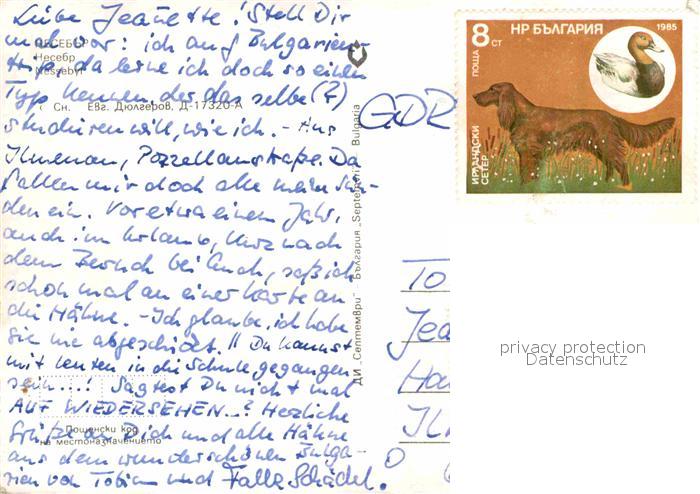 Liebe Jeanette! Stell Dir
mal vor: ich auf Bulgarien-
trip, da lerne ich doch so einen
Typ kennen, der das selbe (?)
studieren will, wie ich. - Aus
Ilmenau, Porzellanstraße. Da
fallen mir doch alle mein Sün-
den ein. Vor etwa einem Jahr,
auch im Urlaub, kurz nach
dem Besuch bei Euch, saß ich
schon mal an einer Karte an
die Hähne. - Ich glaube, ich habe
sie nie abgeschickt. !! Du kannst
mit Leuten in die Schule gegangen
sein...! Sagtest Du nicht mal
AUF WIEDERSEHEN..? Herzliche
Grüße an Dich und alle Hähne
aus dem wunderschönen Bulga-
rien von Tobias und Falle Schädel.
НЕСЕБЪР
Несебр
Nessebyr
Сн. Евг. Дюлгеров, Д-17320-А
Пощенски код
на местоназначението
ДИ „Септември" - България „Septemvri" - Bulgaria
GDR
НР БЪЛГАРИЯ 1985
8 СТ
ПОЩА
ИРЛАНДСКИ
СЕТЕР
TO
Jea
Ha
O
privacy protection
Datenschutz